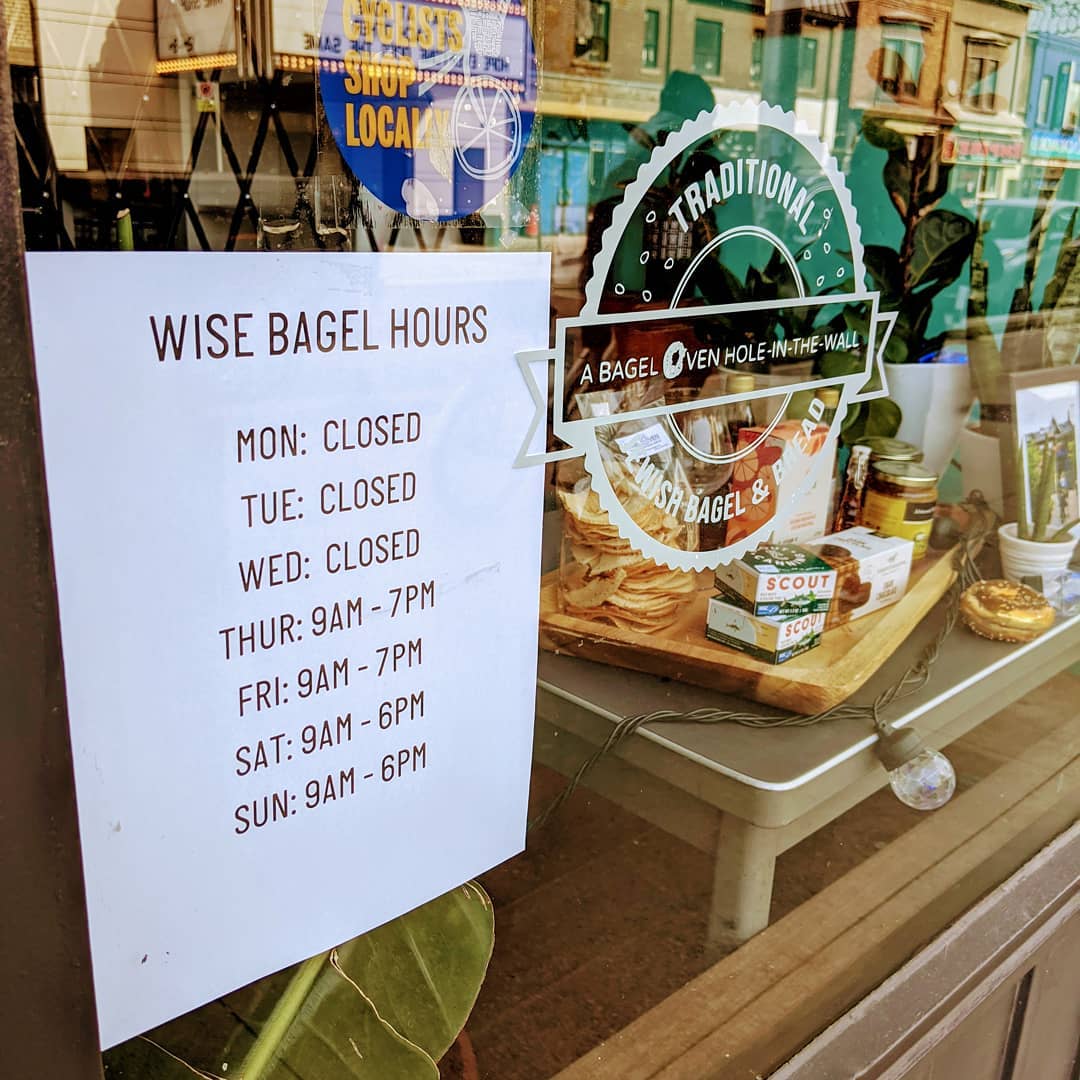 CYCLISTS
SHOP
LOCALLY
WISE BAGEL HOURS
MON: CLOSED
TUE: CLOSED
WED: CLOSED
THUR: 9AM - 7PM
FRI: 9AM - 7PM
SAT: 9AM - 6PM
SUN: 9AM - 6PM
TRADITIONAL
A BAGEL OVEN HOLE-IN-THE-WALL
BAGEL & BREAD
SCOUT
SCOUT